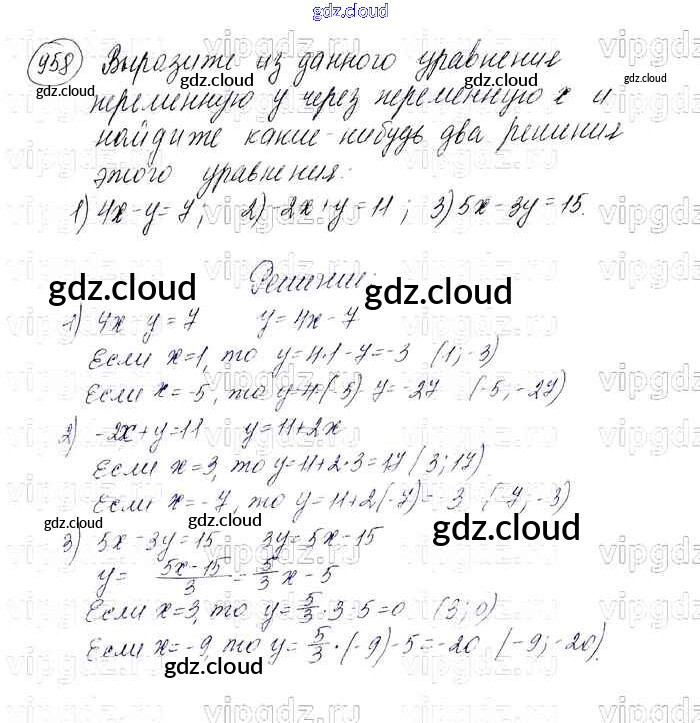 gdz.cloud
958 Выразите из данного уравнения
переменную y через переменную x и
найдите какие-нибудь два решения
этого уравнения:
1) 4x-y=7; 2) -2x+y=11; 3) 5x-3y=15.
Решение:
1) 4x-y=7 y=4x-7
Если x=1, то y=4·1-7=-3 (1;-3)
Если x=-5, то y=4·(-5)-7=-27 (-5;-27)
2) -2x+y=11 y=11+2x
Если x=3, то y=11+2·3=17 (3;17)
Если x=-7, то y=11+2(-7)=-3 (-7;-3)
3) 5x-3y=15 3y=5x-15
y= 5x-15/3 = 5/3 x-5
Если x=3, то y=5/3·3-5=0 (3;0)
Если x=-9, то y=5/3·(-9)-5=-20 (-9;-20).
gdz.cloud
vipgdz.ru